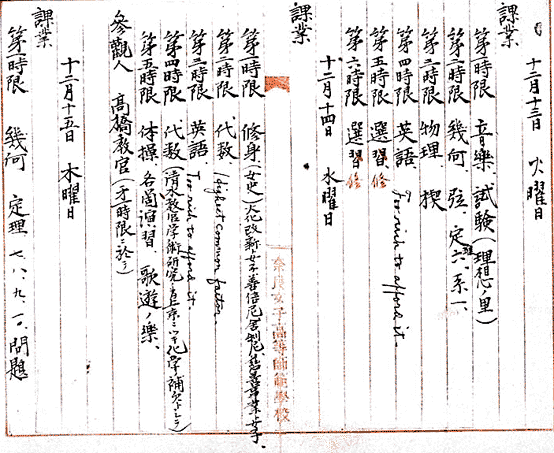 十二月十三日 火曜日
課業
第一時限 音樂、試驗(理想ノ里)
第二時限 幾何、弦、定理六、系一、
第三時限 物理 楔
第四時限 英語、Too rich to afford it.
第五時限 選習、修
第六時限 選習 修
十二月十四日 水曜日
課業
第一時限 修身、(女史)
第二時限 代数 Highest common factor.
第三時限 英語、Too rich to afford it.
第四時限 代数(清水教官学術研究
第五時限 体操 各個演習 歌遊ノ樂、
参觀人 高橋教官(才一時限ニ於テ)
十二月十五日 木曜日
課業
第一時限 幾何 定理 七、八、九、一〇、問題
奈良女子高等師範學校